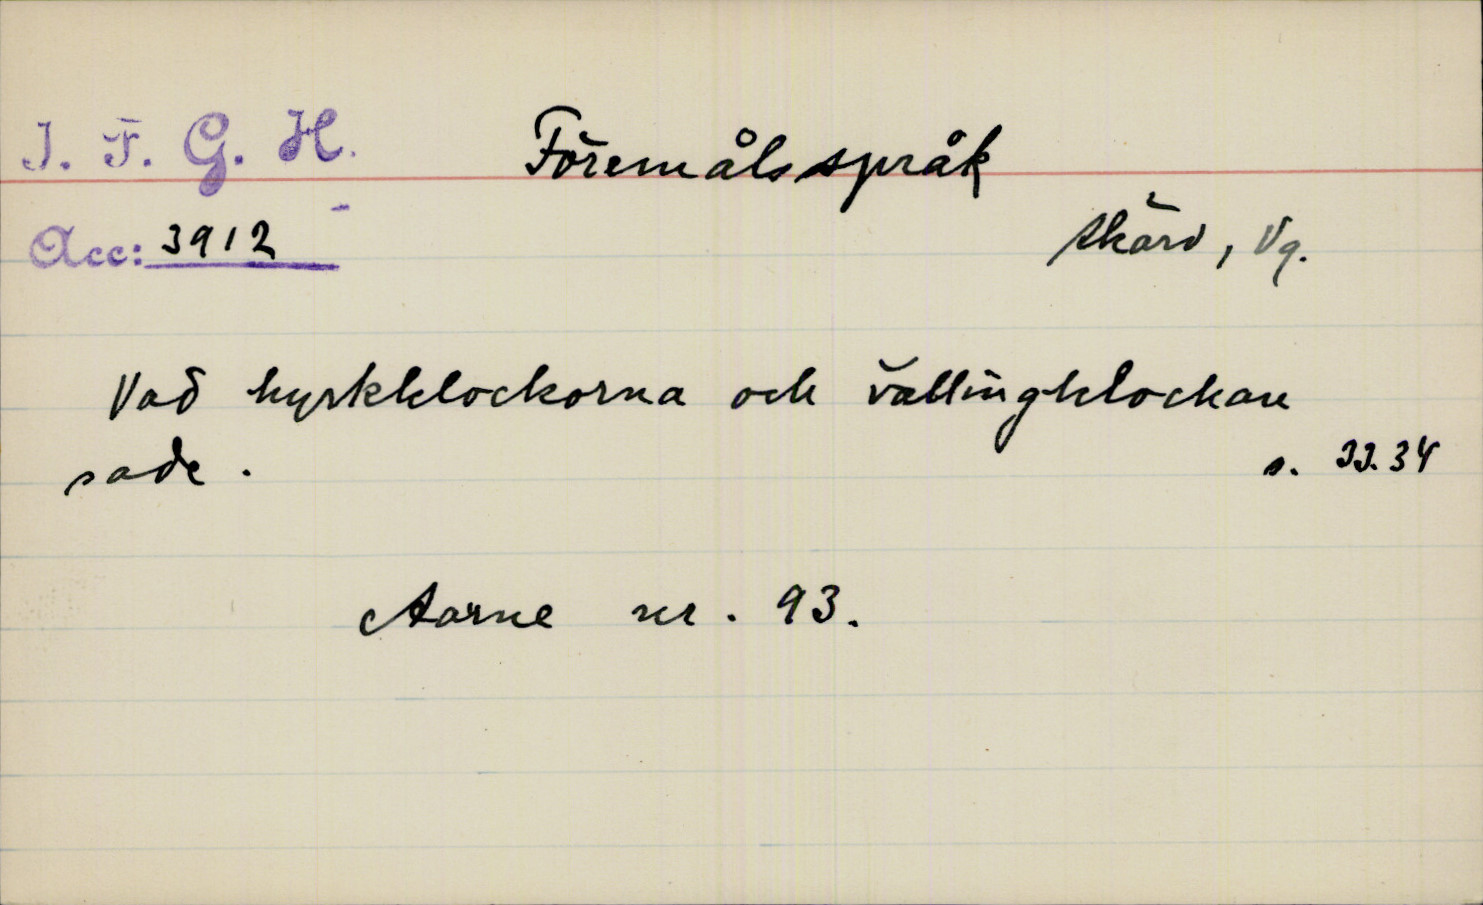 I. F. G. H.
Föremålsspråk
Acc: 3912
Skärv, Vg.
Vad kyrkklockorna och vällingklockan
sade.
s. 33.34
Aarne nr. 93.